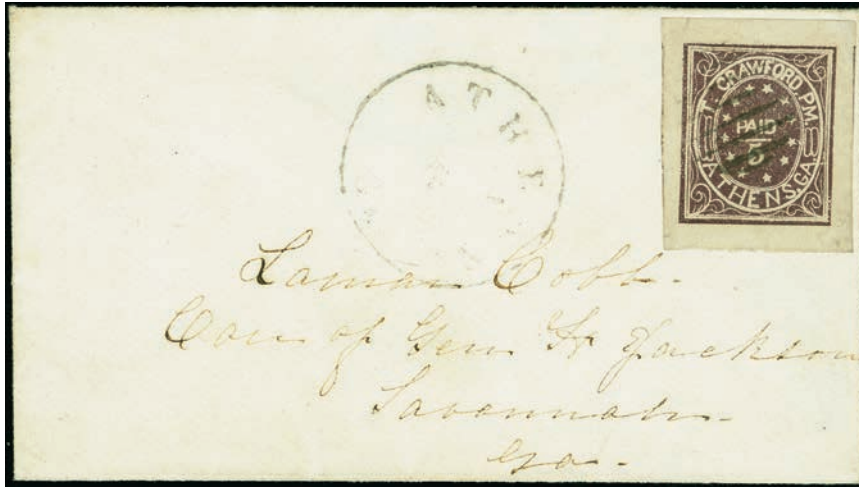 T. CRAWFORD, P.M.
PAID
5
ATHENS, GA.
ATHE
Lamar Cobb.
Care of Gen H R Jackson
Savannah
Ga.